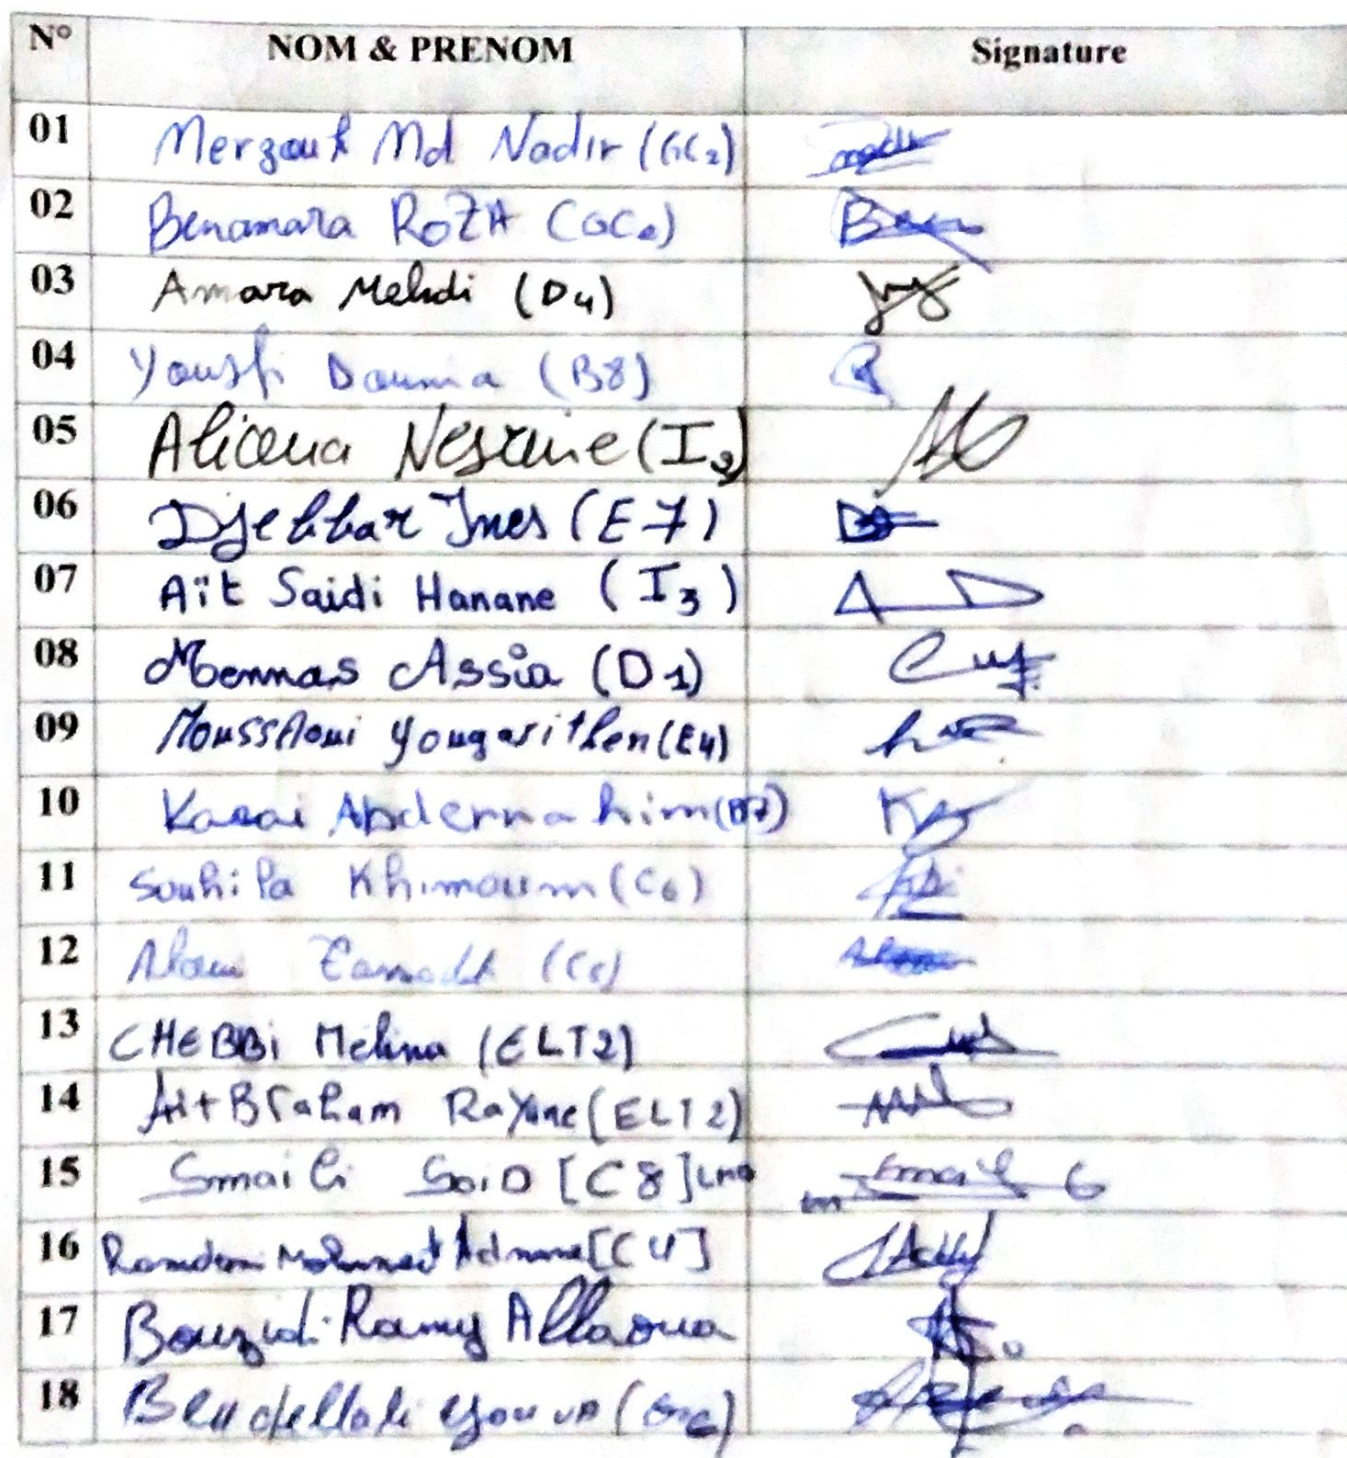 N° NOM & PRENOM Signature
01 Merzouk Md Nadir (GC2)
02 Benamara ROZA (GC2)
03 Amara Mehdi (D4)
04 Yousfi Dounia (B8)
05 Alioua Nesrine (I2)
06 Djebbar Ines (E7)
07 Aït Saidi Hanane (I3)
08 Mennas Assia (D1)
09 MoussAoui Yougarithen (E4)
10 Kasai Abderrahim (B7)
11 Souhila Khimoum (C6)
12
13 CHEBBi Melina (ELT2)
14 Ait Braham Rayane (ELT2)
15 Smaili SaiD [C8]
16 Ramdani Mohamed Adnane [C4]
17 Bouzidi Ramy Allaoua
18 Bendellali